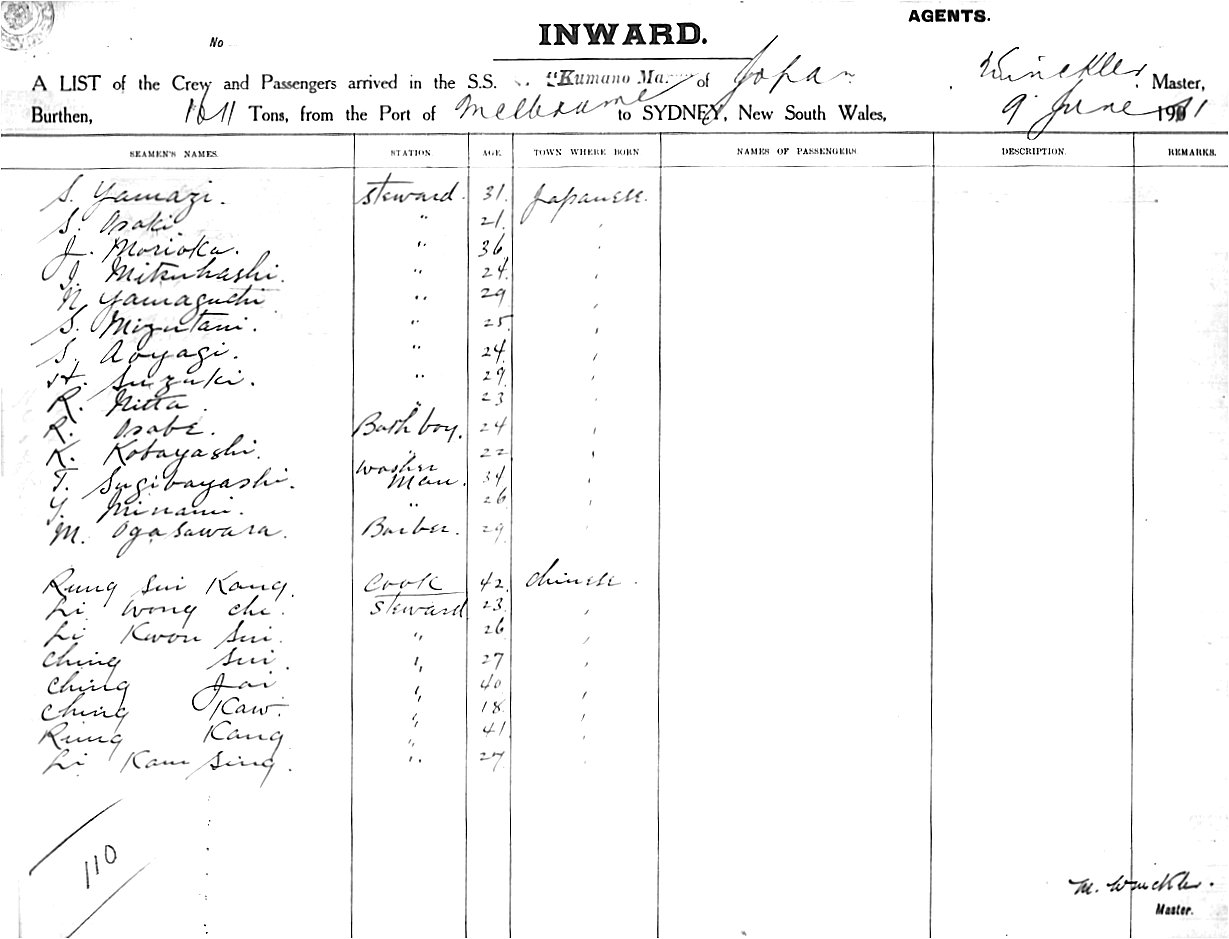 AGENTS.
No
INWARD.
A LIST of the Crew and Passengers arrived in the S.S. "Kumano Ma of Japan Winckler Master,
Burthen, Tons, from the Port of Melbourne to SYDNEY, New South Wales, 9 June 1911
SEAMEN'S NAMES. STATION AGE. TOWN WHERE BORN NAMES OF PASSENGERS DESCRIPTION. REMARKS.
S. Yamazi. Steward. 31. Japanese.
S. Osaki " 21. "
J. Morioka. " 36 "
J. Mitsuhashi. " 24. "
N. Yamaguchi " 29 "
S. Mizutani. " 25 "
S. Aoyagi. " 24. "
H. Suzuki. " 29. "
R. Nitta. " 23 "
R. Osabe. Bath boy. 24 "
K. Kobayashi. " 22 "
T. Sugibayashi. Washer Man. 34 "
Y. Minami. " 26 "
M. Ogasawara. Barber. 29 "
Rung Sui Kang. Cook 42. Chinese.
Li Wong Che. Steward 23. "
Li Kwon Sui. " 26 "
Ching Sui. " 27 "
Ching Jai " 40 "
Ching Kaw. " 18. "
Rung Kang " 41. "
Li Kam Sing. " 27 "
110
M. Winckler.
Master.